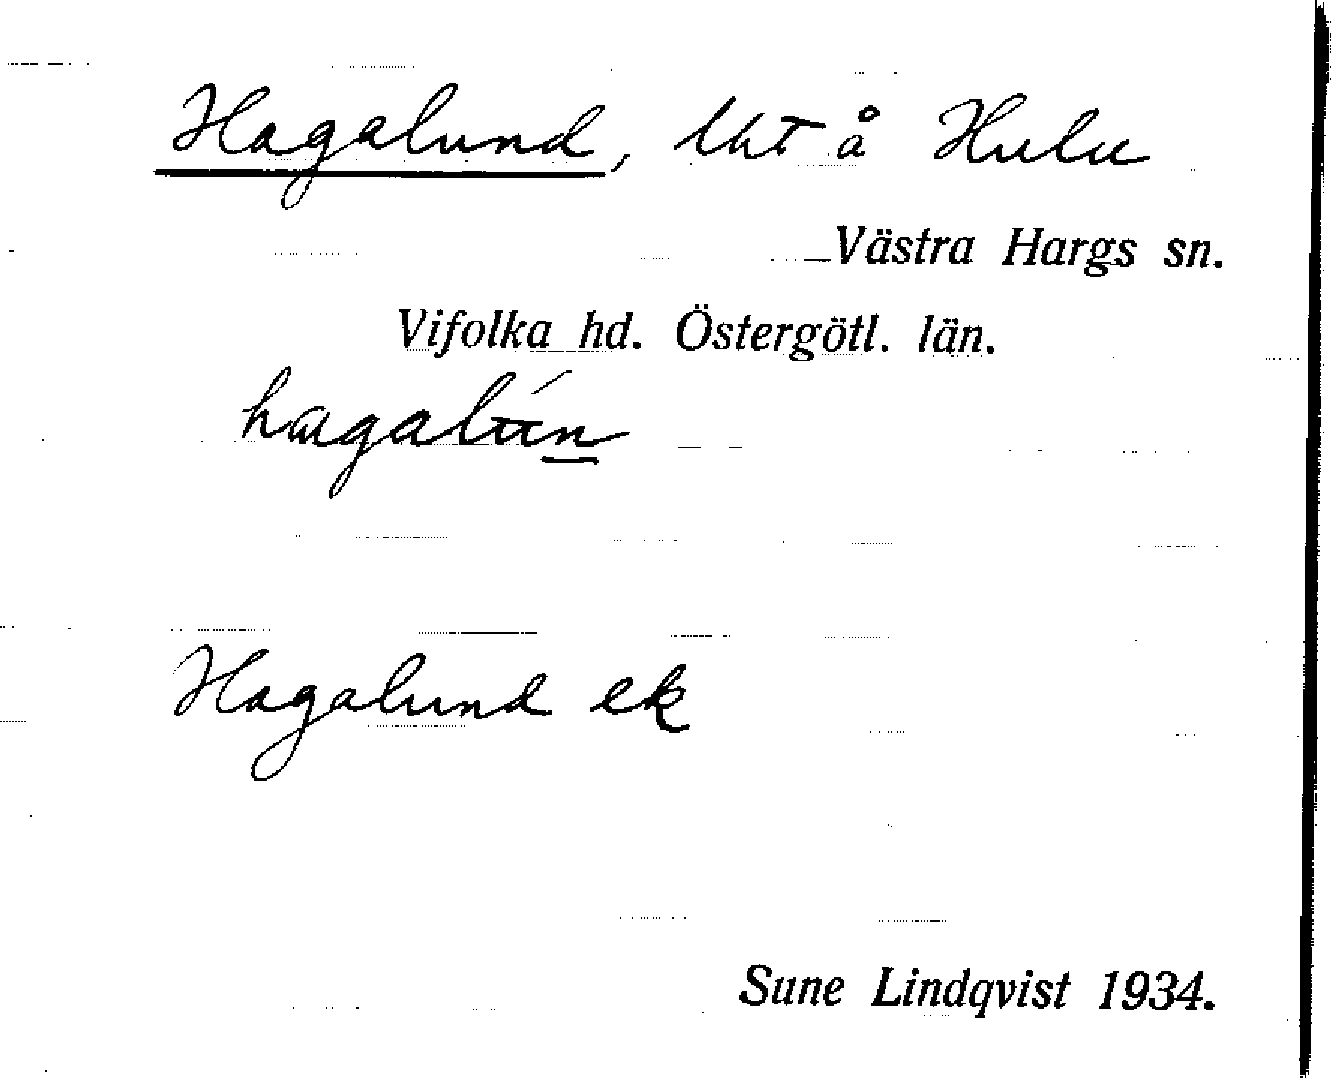 Hagalund, lht å Hulu
Västra Hargs sn.
Vifolka hd. Östergötl. län.
Hagalund ek
Sune Lindqvist 1934.